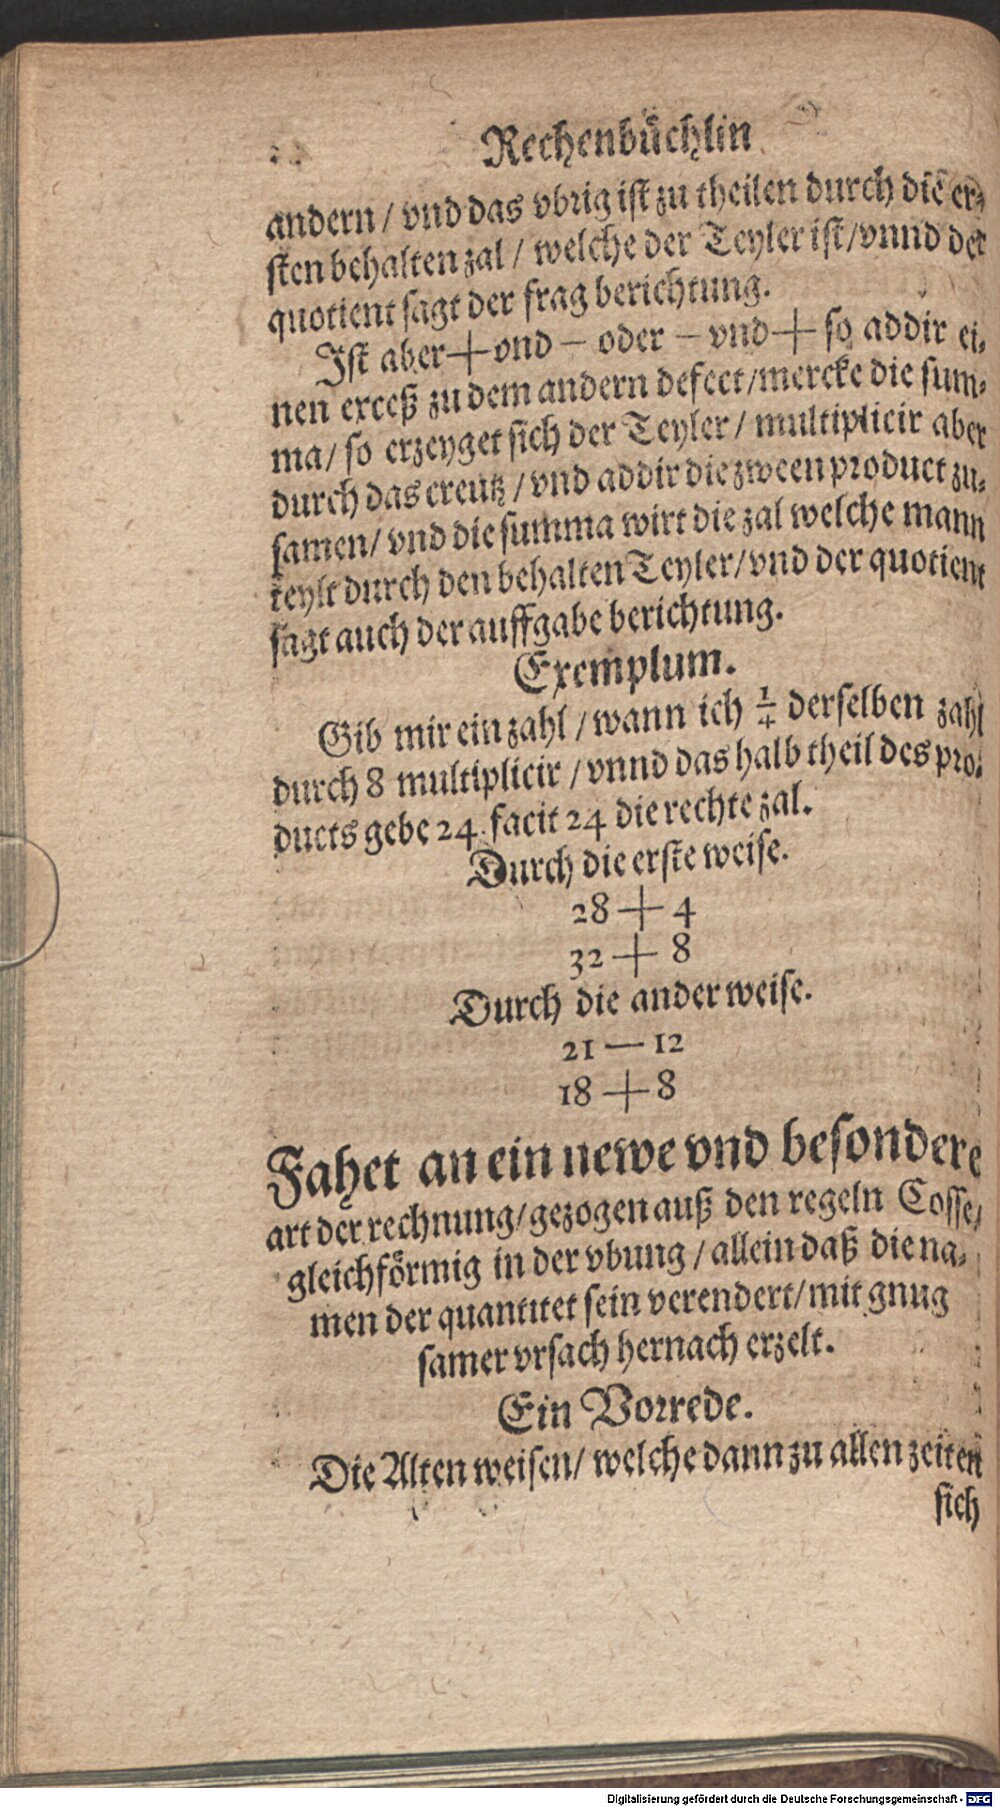 Rechenbůchlin
andern / vnd das vbrig ist zu theilen durch die er-
sten behalten zal / welche der Teyler ist / vnnd der
quotient sagt der frag berichtung.
Ist aber + vnd − oder − vnd + so addir ei-
nen exceß zu dem andern defect / mercke die sum-
ma / so erzeyget sich der Teyler / multiplicir aber
durch das creutz / vnd addir die zween product zu-
samen / vnd die summa wirt die zal welche mann
teylt durch den behalten Teyler / vnd der quotient
sagt auch der auffgabe berichtung.
Exemplum.
Gib mir ein zahl / wann ich 1/4 derselben zahl
durch 8 multiplicir / vnnd das halb theil des pro-
ducts gebe 24. facit 24 die rechte zal.
Durch die erste weise.
28 + 4
32 + 8
Durch die ander weise.
21 — 12
18 + 8
Fahet an ein newe vnd besondere
art der rechnung / gezogen auß den regeln Cosse /
gleichfőrmig in der vbung / allein daß die na-
men der quantitet sein verendert / mit gnug
samer vrsach hernach erzelt.
Ein Vorrede.
Die Alten weisen / welche dann zu allen zeiten
sich
Digitalisierung gefördert durch die Deutsche Forschungsgemeinschaft - DFG